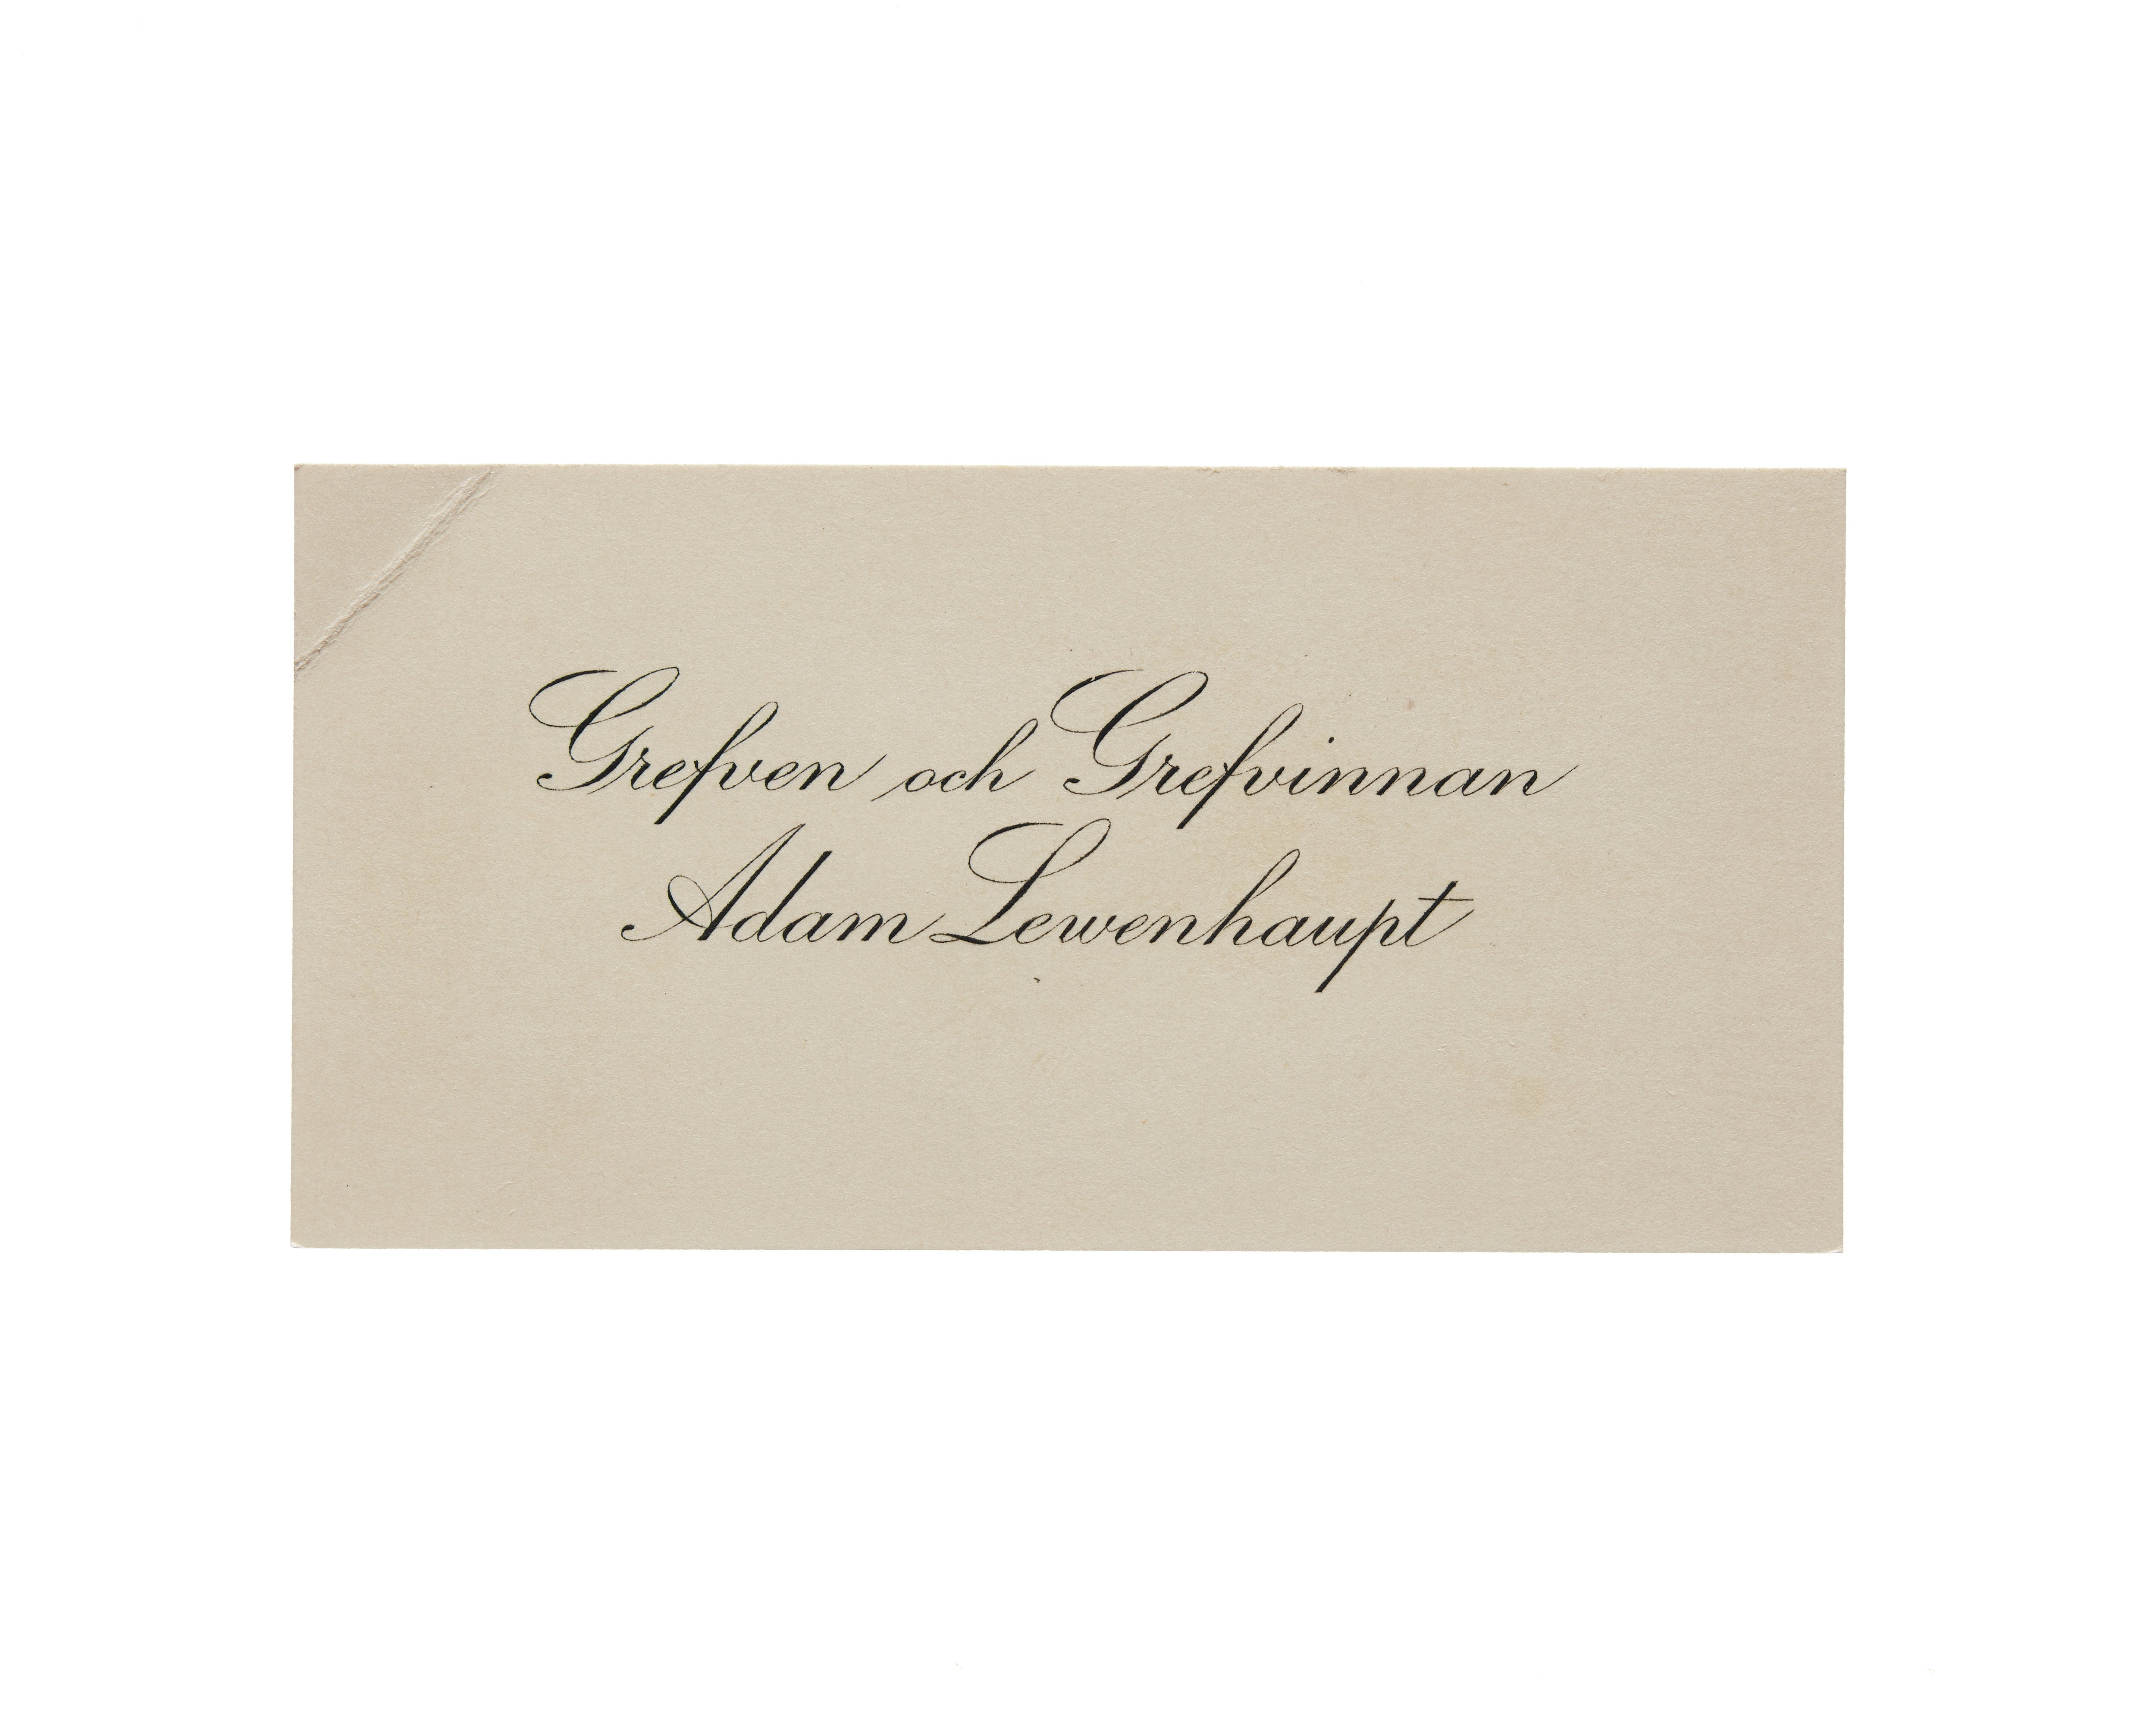 Grefven och Grefvinnan
Adam Lewenhaupt